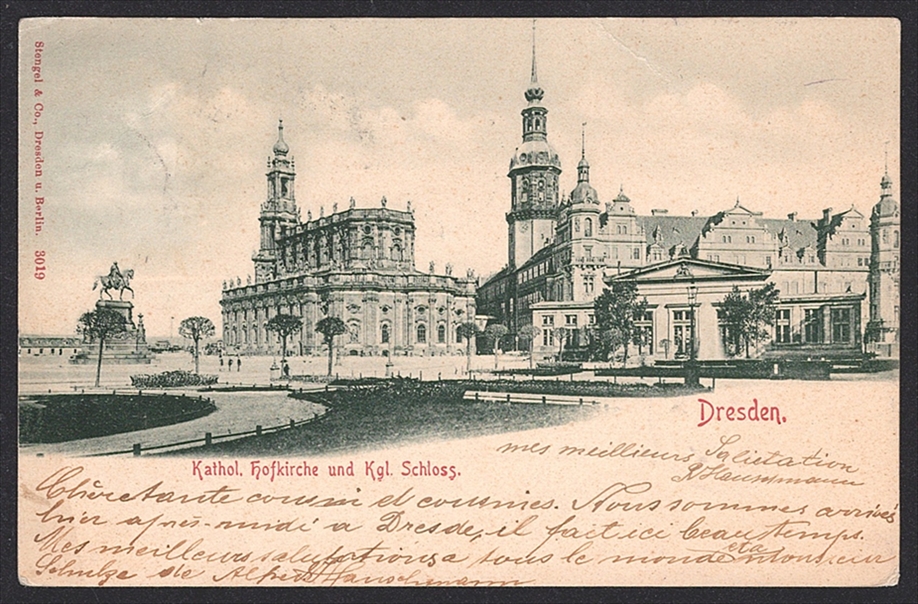 Stengel & Co., Dresden u. Berlin. 3019
Dresden.
Kathol. Hofkirche und Kgl. Schloss.
mes meilleurs Salutation
Hauschmann
Chère Tante cousin et cousines. Nous sommes arrivés
hier après-midi a Dresde, il fait ici beau temps.
Mes meilleurs salutations a tous le monde et a Monsieur
Schulze de Alfred Hauschmann